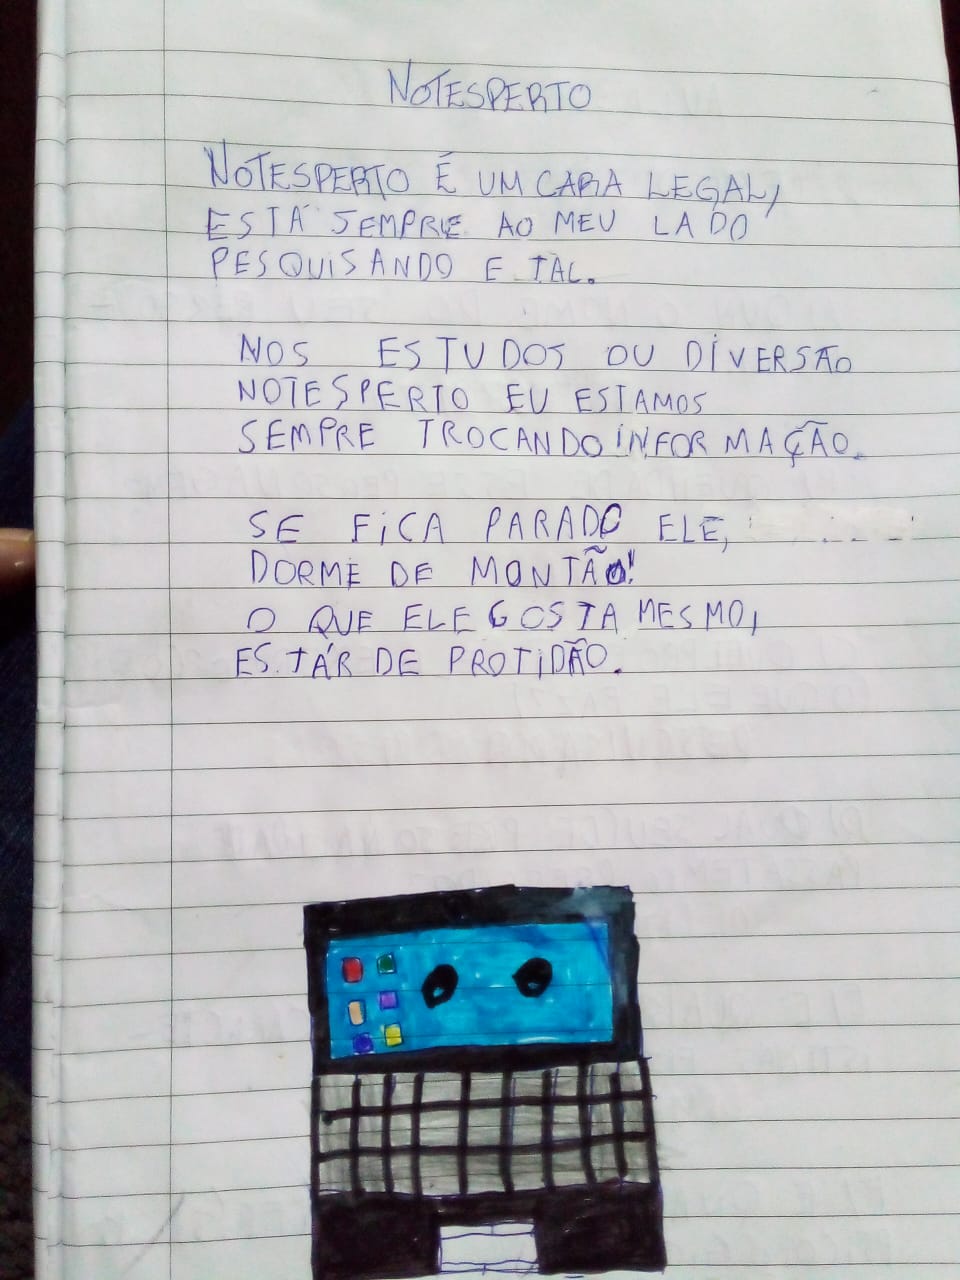 NOTESPERTO
NOTESPERTO É UM CARA LEGAL,
ESTÁ SEMPRE AO MEU LADO
PESQUISANDO E TAL.
NOS ESTUDOS OU DIVERSÃO
NOTESPERTO EU ESTAMOS
SEMPRE TROCANDO INFORMAÇÃO.
SE FICA PARADO ELE,
DORME DE MONTÃO!
O QUE ELE GOSTA MESMO,
ESTÁR DE PROTIDÃO.